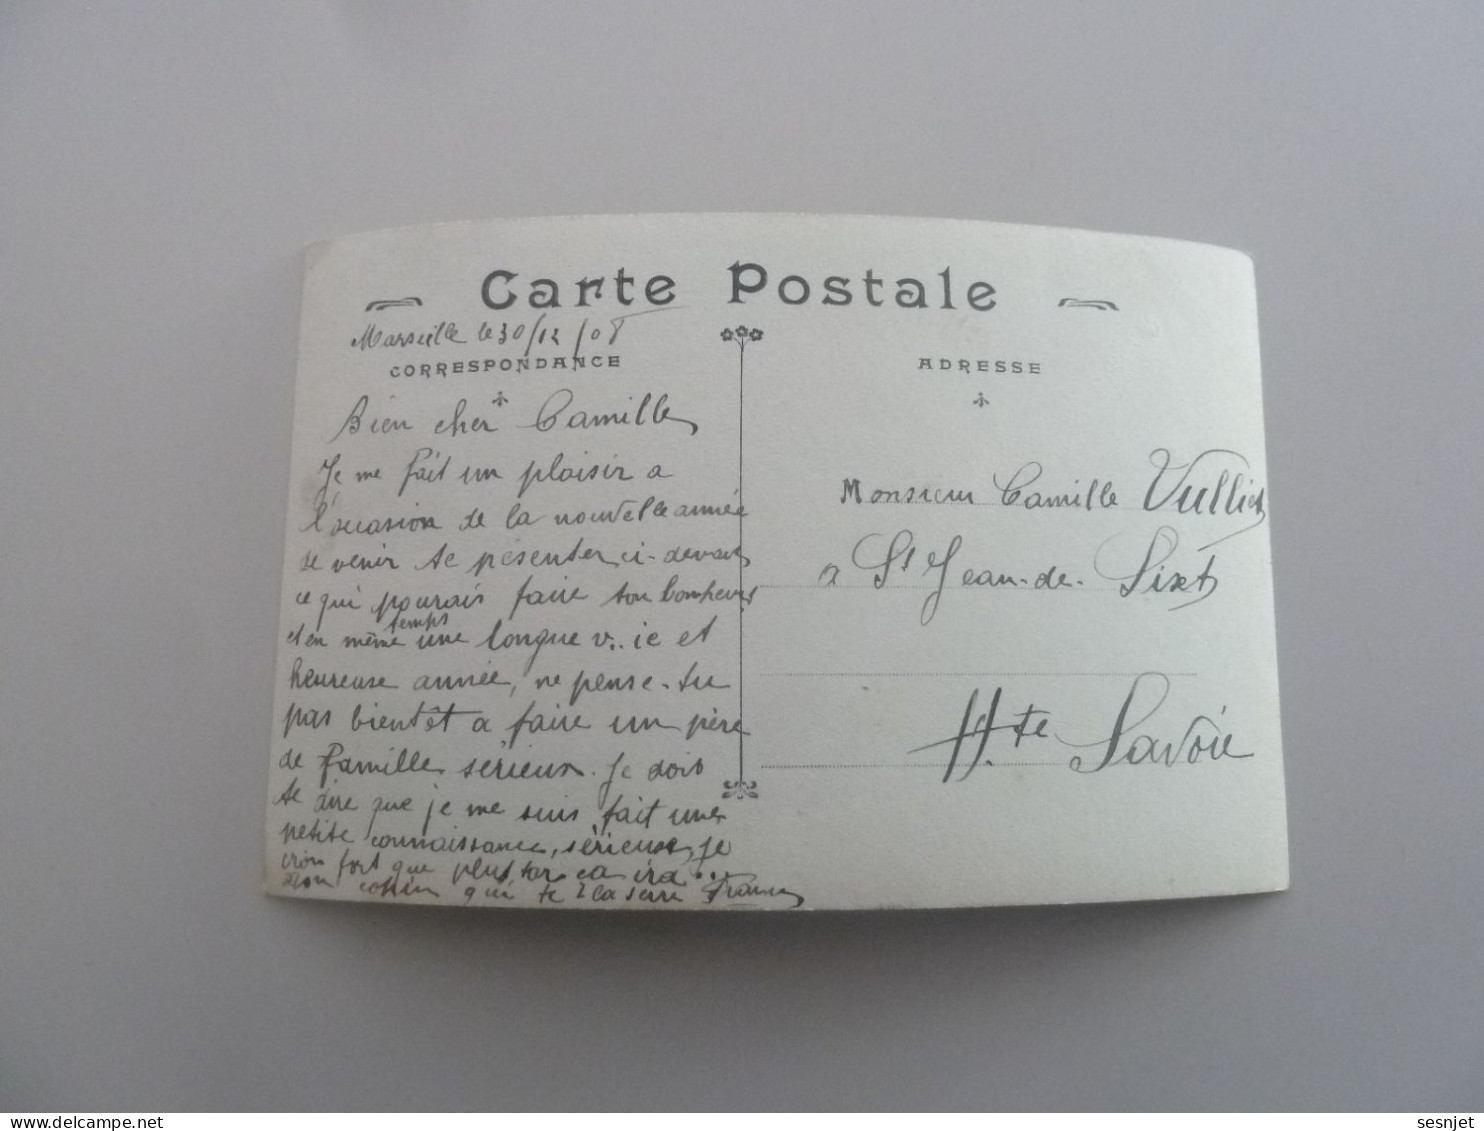 Carte Postale
Marseille le 30/12/08
CORRESPONDANCE
Bien cher Camille
Je me fait un plaisir a
l'occasion de la nouvelle année
de venir te présenter ci-devant
ce qui pourais faire ton bonheur
et en même temps une longue v..ie et
heureuse année, ne pense-tu
pas bientêt a faire un père
de famille sérieux. Je dois
te dire que je me suis fait une
petite connaissance, sérieuse, je
crois fort que plus tar ca ira...
qui te la serre
ADRESSE
Monsieur Camille Vulliet
a St Jean-de-Sixt
Hte Savoie
sesnjet